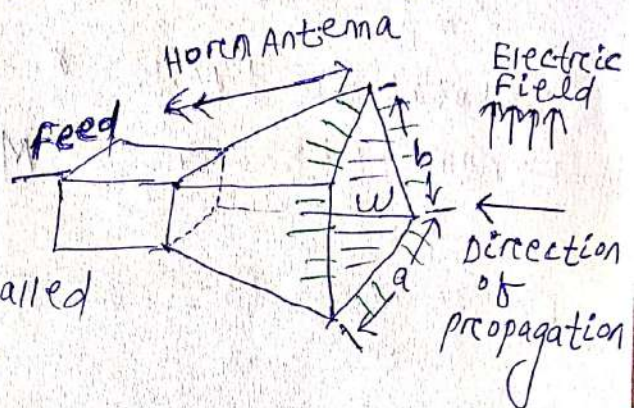 Horen Antenna
Electreic
Field
Feed
b
W
a
Direction
of
Propagation
alled